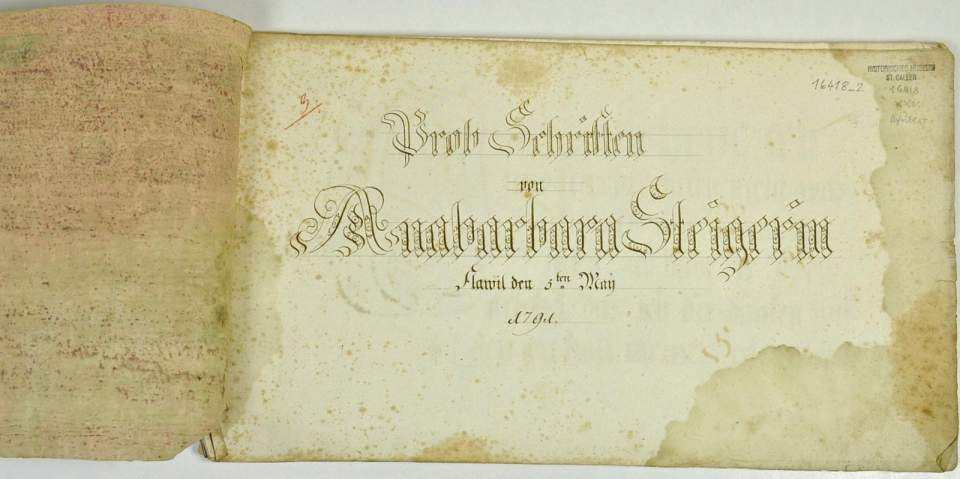 3.
16418_2
HISTORISCHES MUSEUM
ST. GALLEN
16418
Prob Schrifften
von
Anabarbara Steigerin
Flawil den 5ten May
1791.